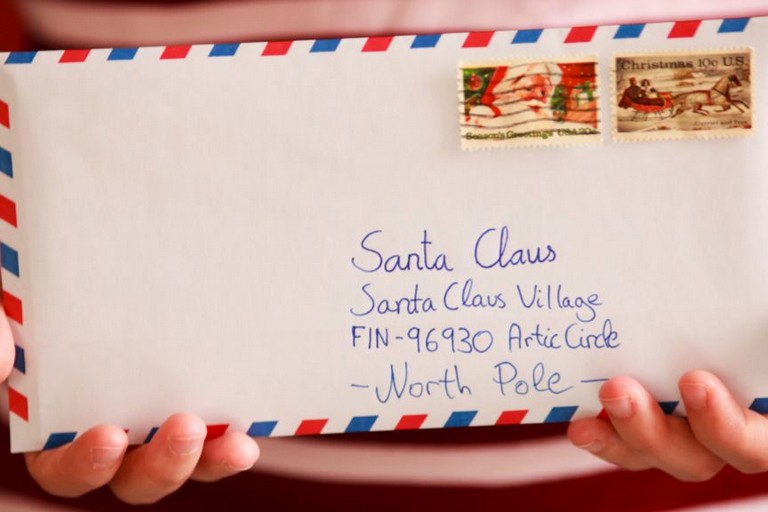 Season's Greetings USA 20c
Christmas 10c U.S.
Santa Claus
Santa Claus Village
FIN-96930 Artic Circle
- North Pole -